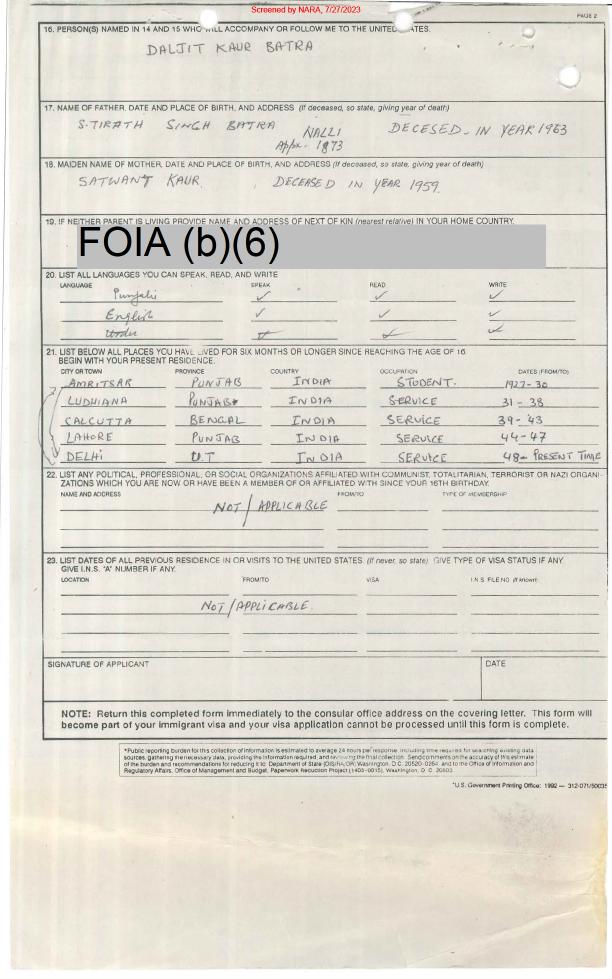 Screened by NARA, 7/27/2023
PAGE 2
16. PERSON(S) NAMED IN 14 AND 15 WHO WILL ACCOMPANY OR FOLLOW ME TO THE UNITED STATES.
DALJIT KAUR BATRA
17. NAME OF FATHER, DATE AND PLACE OF BIRTH, AND ADDRESS (If deceased, so state, giving year of death)
S. TIRATH SINGH BATRA NALLI DECESED - IN YEAR 1963
Appx. 1873
18. MAIDEN NAME OF MOTHER, DATE AND PLACE OF BIRTH, AND ADDRESS (If deceased, so state, giving year of death)
SATWANT KAUR, DECEASED IN YEAR 1959.
19. IF NEITHER PARENT IS LIVING PROVIDE NAME AND ADDRESS OF NEXT OF KIN (nearest relative) IN YOUR HOME COUNTRY.
FOIA (b)(6)
20. LIST ALL LANGUAGES YOU CAN SPEAK, READ, AND WRITE
LANGUAGE SPEAK READ WRITE
Punjabi ✓ ✓ ✓
English ✓ ✓ ✓
Urdu ✓ ✓ ✓
21. LIST BELOW ALL PLACES YOU HAVE LIVED FOR SIX MONTHS OR LONGER SINCE REACHING THE AGE OF 16.
BEGIN WITH YOUR PRESENT RESIDENCE.
CITY OR TOWN PROVINCE COUNTRY OCCUPATION DATES (FROM/TO)
AMRITSAR PUNJAB INDIA STUDENT. 1927-30
LUDHIANA PUNJAB INDIA SERVICE 31-38
CALCUTTA BENGAL INDIA SERVICE 39-43
LAHORE PUNJAB INDIA SERVICE 44-47
DELHI U.T INDIA SERVICE 48- PRESENT TIME
22. LIST ANY POLITICAL, PROFESSIONAL, OR SOCIAL ORGANIZATIONS AFFILIATED WITH COMMUNIST, TOTALITARIAN, TERRORIST OR NAZI ORGANI-
ZATIONS WHICH YOU ARE NOW OR HAVE BEEN A MEMBER OF OR AFFILIATED WITH SINCE YOUR 16TH BIRTHDAY.
NAME AND ADDRESS FROM/TO TYPE OF MEMBERSHIP
NOT/APPLICABLE
23. LIST DATES OF ALL PREVIOUS RESIDENCE IN OR VISITS TO THE UNITED STATES. (If never, so state) GIVE TYPE OF VISA STATUS IF ANY.
GIVE I.N.S. "A" NUMBER IF ANY.
LOCATION FROM/TO VISA I.N.S. FILE NO. (If known)
NOT/APPLICABLE.
SIGNATURE OF APPLICANT DATE
NOTE: Return this completed form immediately to the consular office address on the covering letter. This form will
become part of your immigrant visa and your visa application cannot be processed until this form is complete.
*Public reporting burden for this collection of information is estimated to average 24 hours per response, including time required for searching existing data
sources, gathering the necessary data, providing the information required, and reviewing the final collection. Send comments on the accuracy of this estimate
of the burden and recommendations for reducing it to: Department of State (OIS/RA/DR) Washington, D.C. 20520-0264, and to the Office of Information and
Regulatory Affairs, Office of Management and Budget, Paperwork Reduction Project (1405-0015), Washington, D.C. 20503.
*U.S. Government Printing Office: 1992 — 312-071/50035